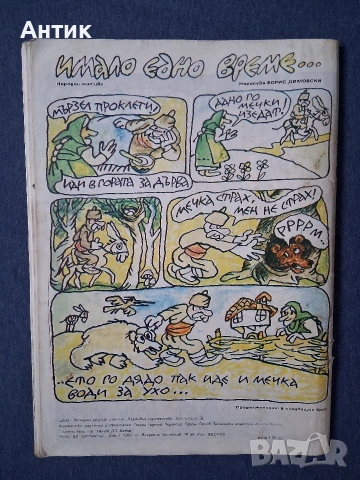 Антик
имало едно време...
Народни мотиви
Нарисува БОРИС ДИМОВСКИ
МЪРЗЕЛ ПРОКЛЕТИ!
ИДИ В ГОРАТА ЗА ДЪРВА
ДАДНО ГО
МЕЧКИ
ИЗЕДАТ!
МЕЧКА СТРАХ,
МЕН НЕ СТРАХ!
РРРРМ..
..ЕТО ГО ДЯДО ПАК ИДЕ И МЕЧКА
ВОДИ ЗА УХО...
Продължението в следващия брой
bazar